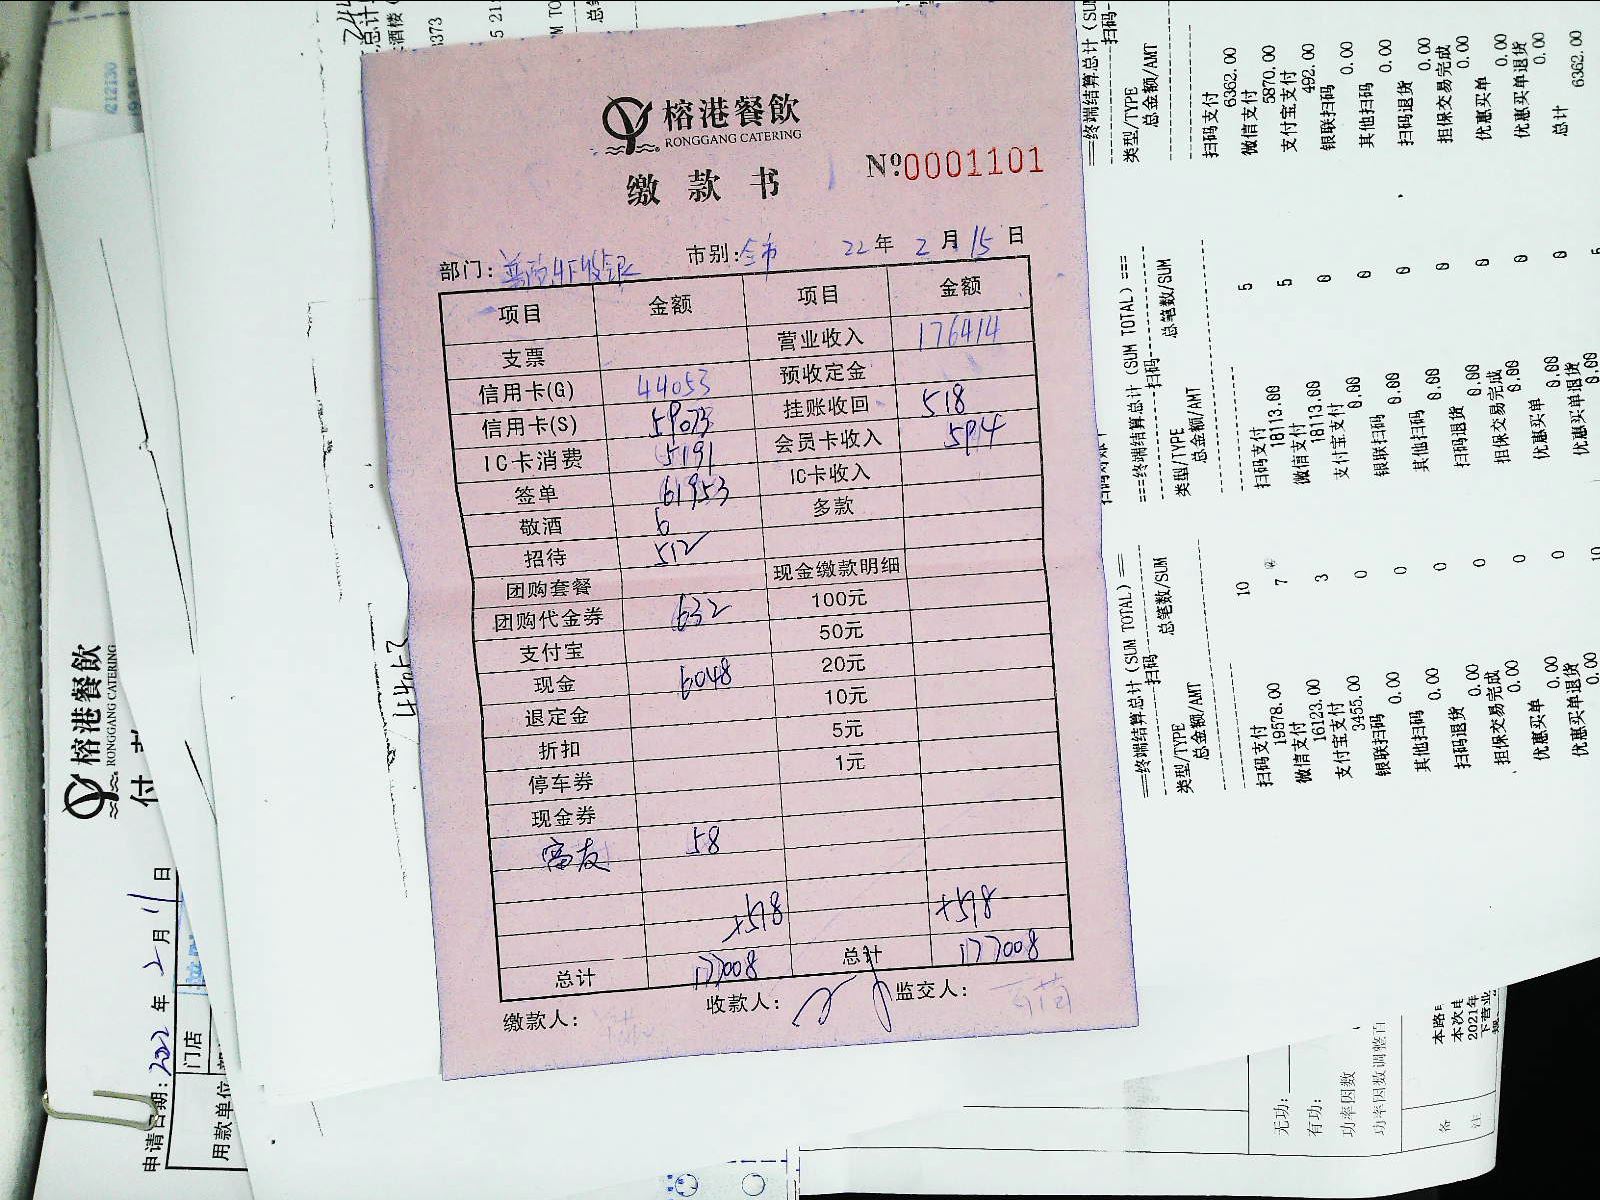 榕港餐飲
RONGGANG CATERING
缴款书
№0001101
部门: 市别:全市 22年2月15日
项目 金额 项目 金额
支票 营业收入 176414
信用卡(G) 44053 预收定金
信用卡(S) 59073 挂账收回 518
IC卡消费 5191 会员卡收入 594
签单 61953 IC卡收入
敬酒 6 多款
招待 512
团购套餐 现金缴款明细
团购代金券 632 100元
支付宝 50元
现金 6048 20元
退定金 10元
折扣 5元
停车券 1元
现金券
富友 58
+518 +518
总计 177008 总计 177008
缴款人: 收款人: 监交人:
===终端结算总计(SU
扫码
类型/TYPE
总金额/AMT
扫码支付
6362.00
微信支付
5870.00
支付宝支付
492.00
银联扫码
0.00
其他扫码
0.00
扫码退货
0.00
担保交易完成
0.00
优惠买单
0.00
优惠买单退货
0.00
总计
6362.00
===终端结算总计(SUM TOTAL)===
扫码
类型/TYPE 总笔数/SUM
总金额/AMT
扫码支付 5
18113.00
微信支付 5
18113.00
支付宝支付 0
0.00
银联扫码 0
0.00
其他扫码 0
0.00
扫码退货 0
0.00
担保交易完成 0
0.00
优惠买单 0
0.00
优惠买单退货 0
0.00
===终端结算总计(SUM TOTAL)===
扫码
类型/TYPE 总笔数/SUM
总金额/AMT
扫码支付 10
19578.00
微信支付 7
16123.00
支付宝支付 3
3455.00
银联扫码 0
0.00
其他扫码 0
0.00
扫码退货 0
0.00
担保交易完成 0
0.00
优惠买单 0
0.00
优惠买单退货 0
0.00
榕港餐飲
RONGGANG CATERING
付
申请日期:2022年2月11日
用款单位
门店
无功:
有功:
功率因数
功率因数调整
备注
本次
2021年